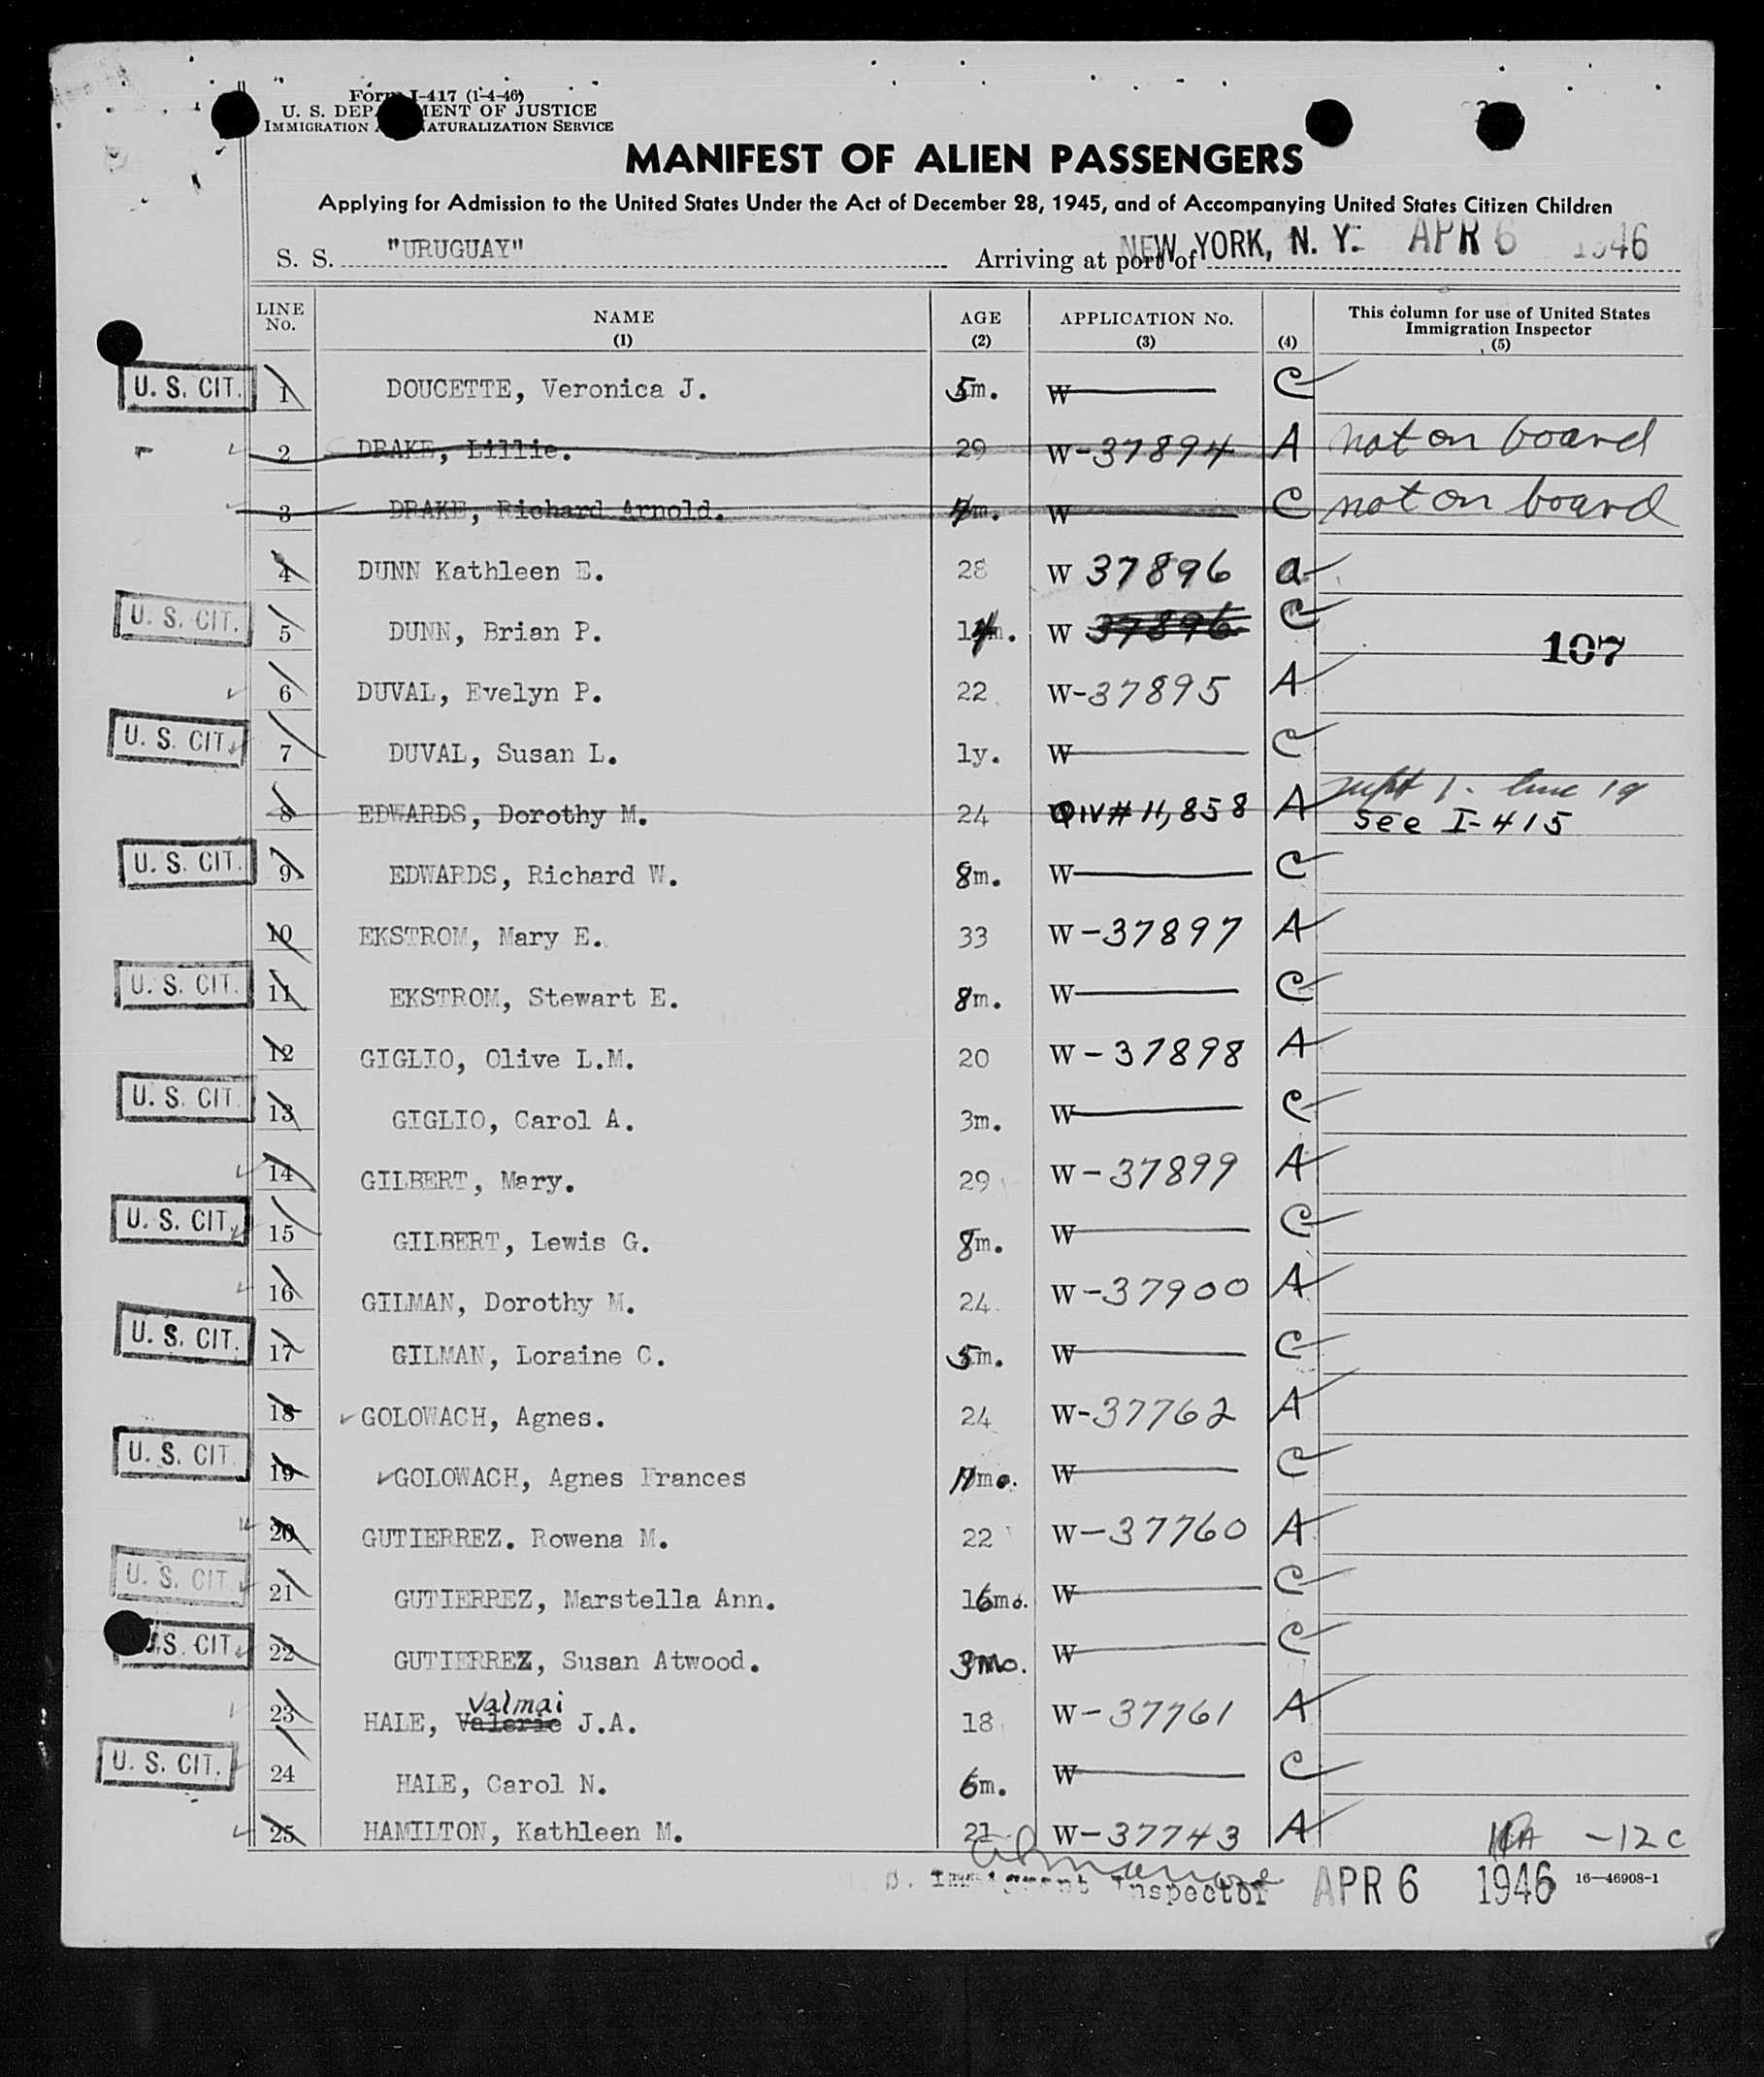 Form I-417 (1-4-46)
U. S. DEPARTMENT OF JUSTICE
IMMIGRATION AND NATURALIZATION SERVICE
MANIFEST OF ALIEN PASSENGERS
Applying for Admission to the United States Under the Act of December 28, 1945, and of Accompanying United States Citizen Children
S. S. "URUGUAY" Arriving at port of NEW YORK, N. Y. APR 6 1946
LINE No. NAME (1) AGE (2) APPLICATION No. (3) (4) This column for use of United States Immigration Inspector (5)
U. S. CIT. 1 DOUCETTE, Veronica J. 5m. W C
2 DRAKE, Lillie. 29 W-37894 A not on board
3 DRAKE, Richard Arnold. 7m. W C not on board
4 DUNN Kathleen E. 28 W 37896 a
U. S. CIT. 5 DUNN, Brian P. 14m. W 37896 C
107
6 DUVAL, Evelyn P. 22 W-37895 A
U. S. CIT. 7 DUVAL, Susan L. 1y. W C
8 EDWARDS, Dorothy M. 24 QIV# 11,858 A line 19
see I-415
U. S. CIT. 9 EDWARDS, Richard W. 8m. W C
10 EKSTROM, Mary E. 33 W-37897 A
U. S. CIT. 11 EKSTROM, Stewart E. 8m. W C
12 GIGLIO, Olive L.M. 20 W-37898 A
U. S. CIT. 13 GIGLIO, Carol A. 3m. W C
14 GILBERT, Mary. 29 W-37899 A
U. S. CIT. 15 GILBERT, Lewis G. 8m. W C
16 GILMAN, Dorothy M. 24 W-37900 A
U. S. CIT. 17 GILMAN, Loraine C. 5m. W C
18 GOLOWACH, Agnes. 24 W-37762 A
U. S. CIT. 19 GOLOWACH, Agnes Frances 11mo. W C
20 GUTIERREZ. Rowena M. 22 W-37760 A
U. S. CIT. 21 GUTIERREZ, Marstella Ann. 16mo. W C
U.S. CIT. 22 GUTIERREZ, Susan Atwood. 3mo. W C
Valmai
23 HALE, Valerie J.A. 18 W-37761 A
U. S. CIT. 24 HALE, Carol N. 6m. W C
25 HAMILTON, Kathleen M. 21 W-37743 A -12 C
S. Immigrant Inspector APR 6 1946 16—46908-1